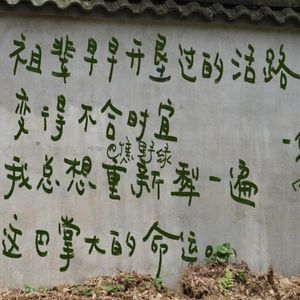 祖辈早早开垦过的活路
变得不合时宜
我总想重新犁一遍
这巴掌大的命运。